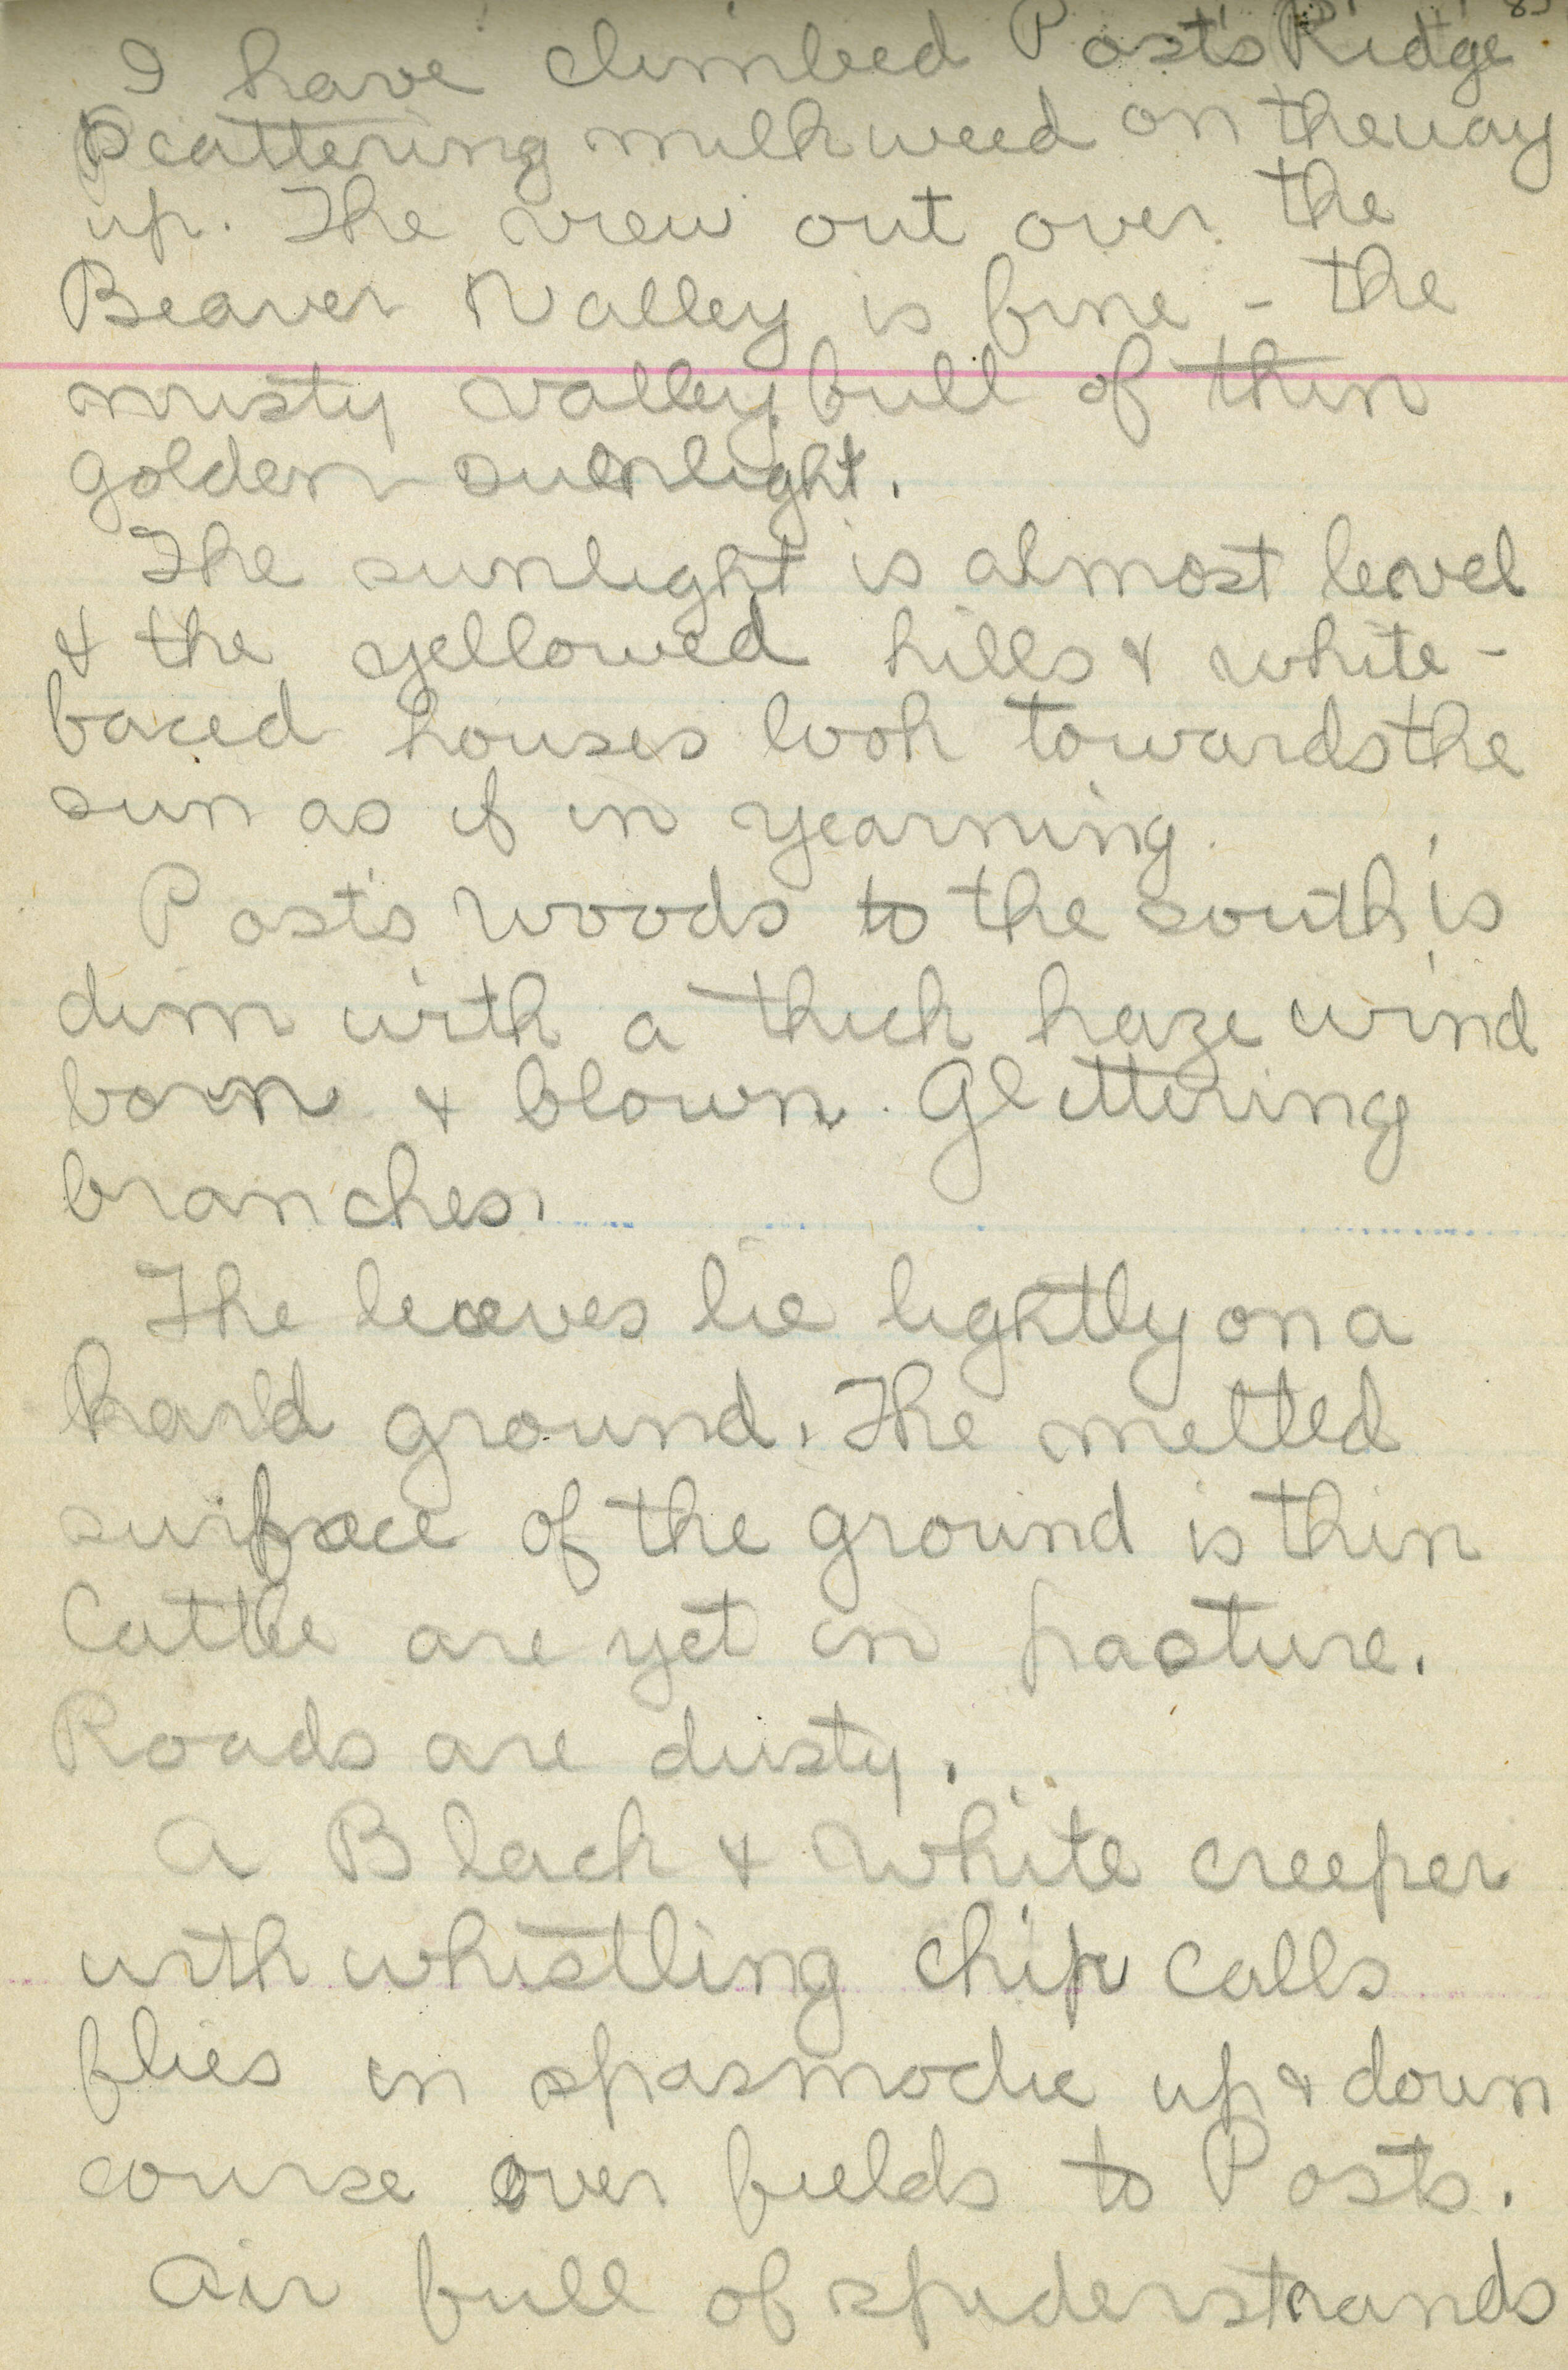 I have climbed Post's Ridge
Scattering milkweed on the way
up. The view out over the
Beaver Valley is fine - the
misty valley full of thin
golden sunlight.
The sunlight is almost level
& the yellowed hills & white-
faced houses look towards the
sun as if in yearning.
Post's Woods to the south is
dim with a thick haze wind
born & blown. Glittering
branches.
The leaves lie lightly on a
hard ground. The melted
surface of the ground is thin
Cattle are yet in pasture.
Roads are dusty.
A Black & White creeper
with whistling chip calls
flies in spasmodic up & down
course over fields to Posts.
Air full of spiderstrands